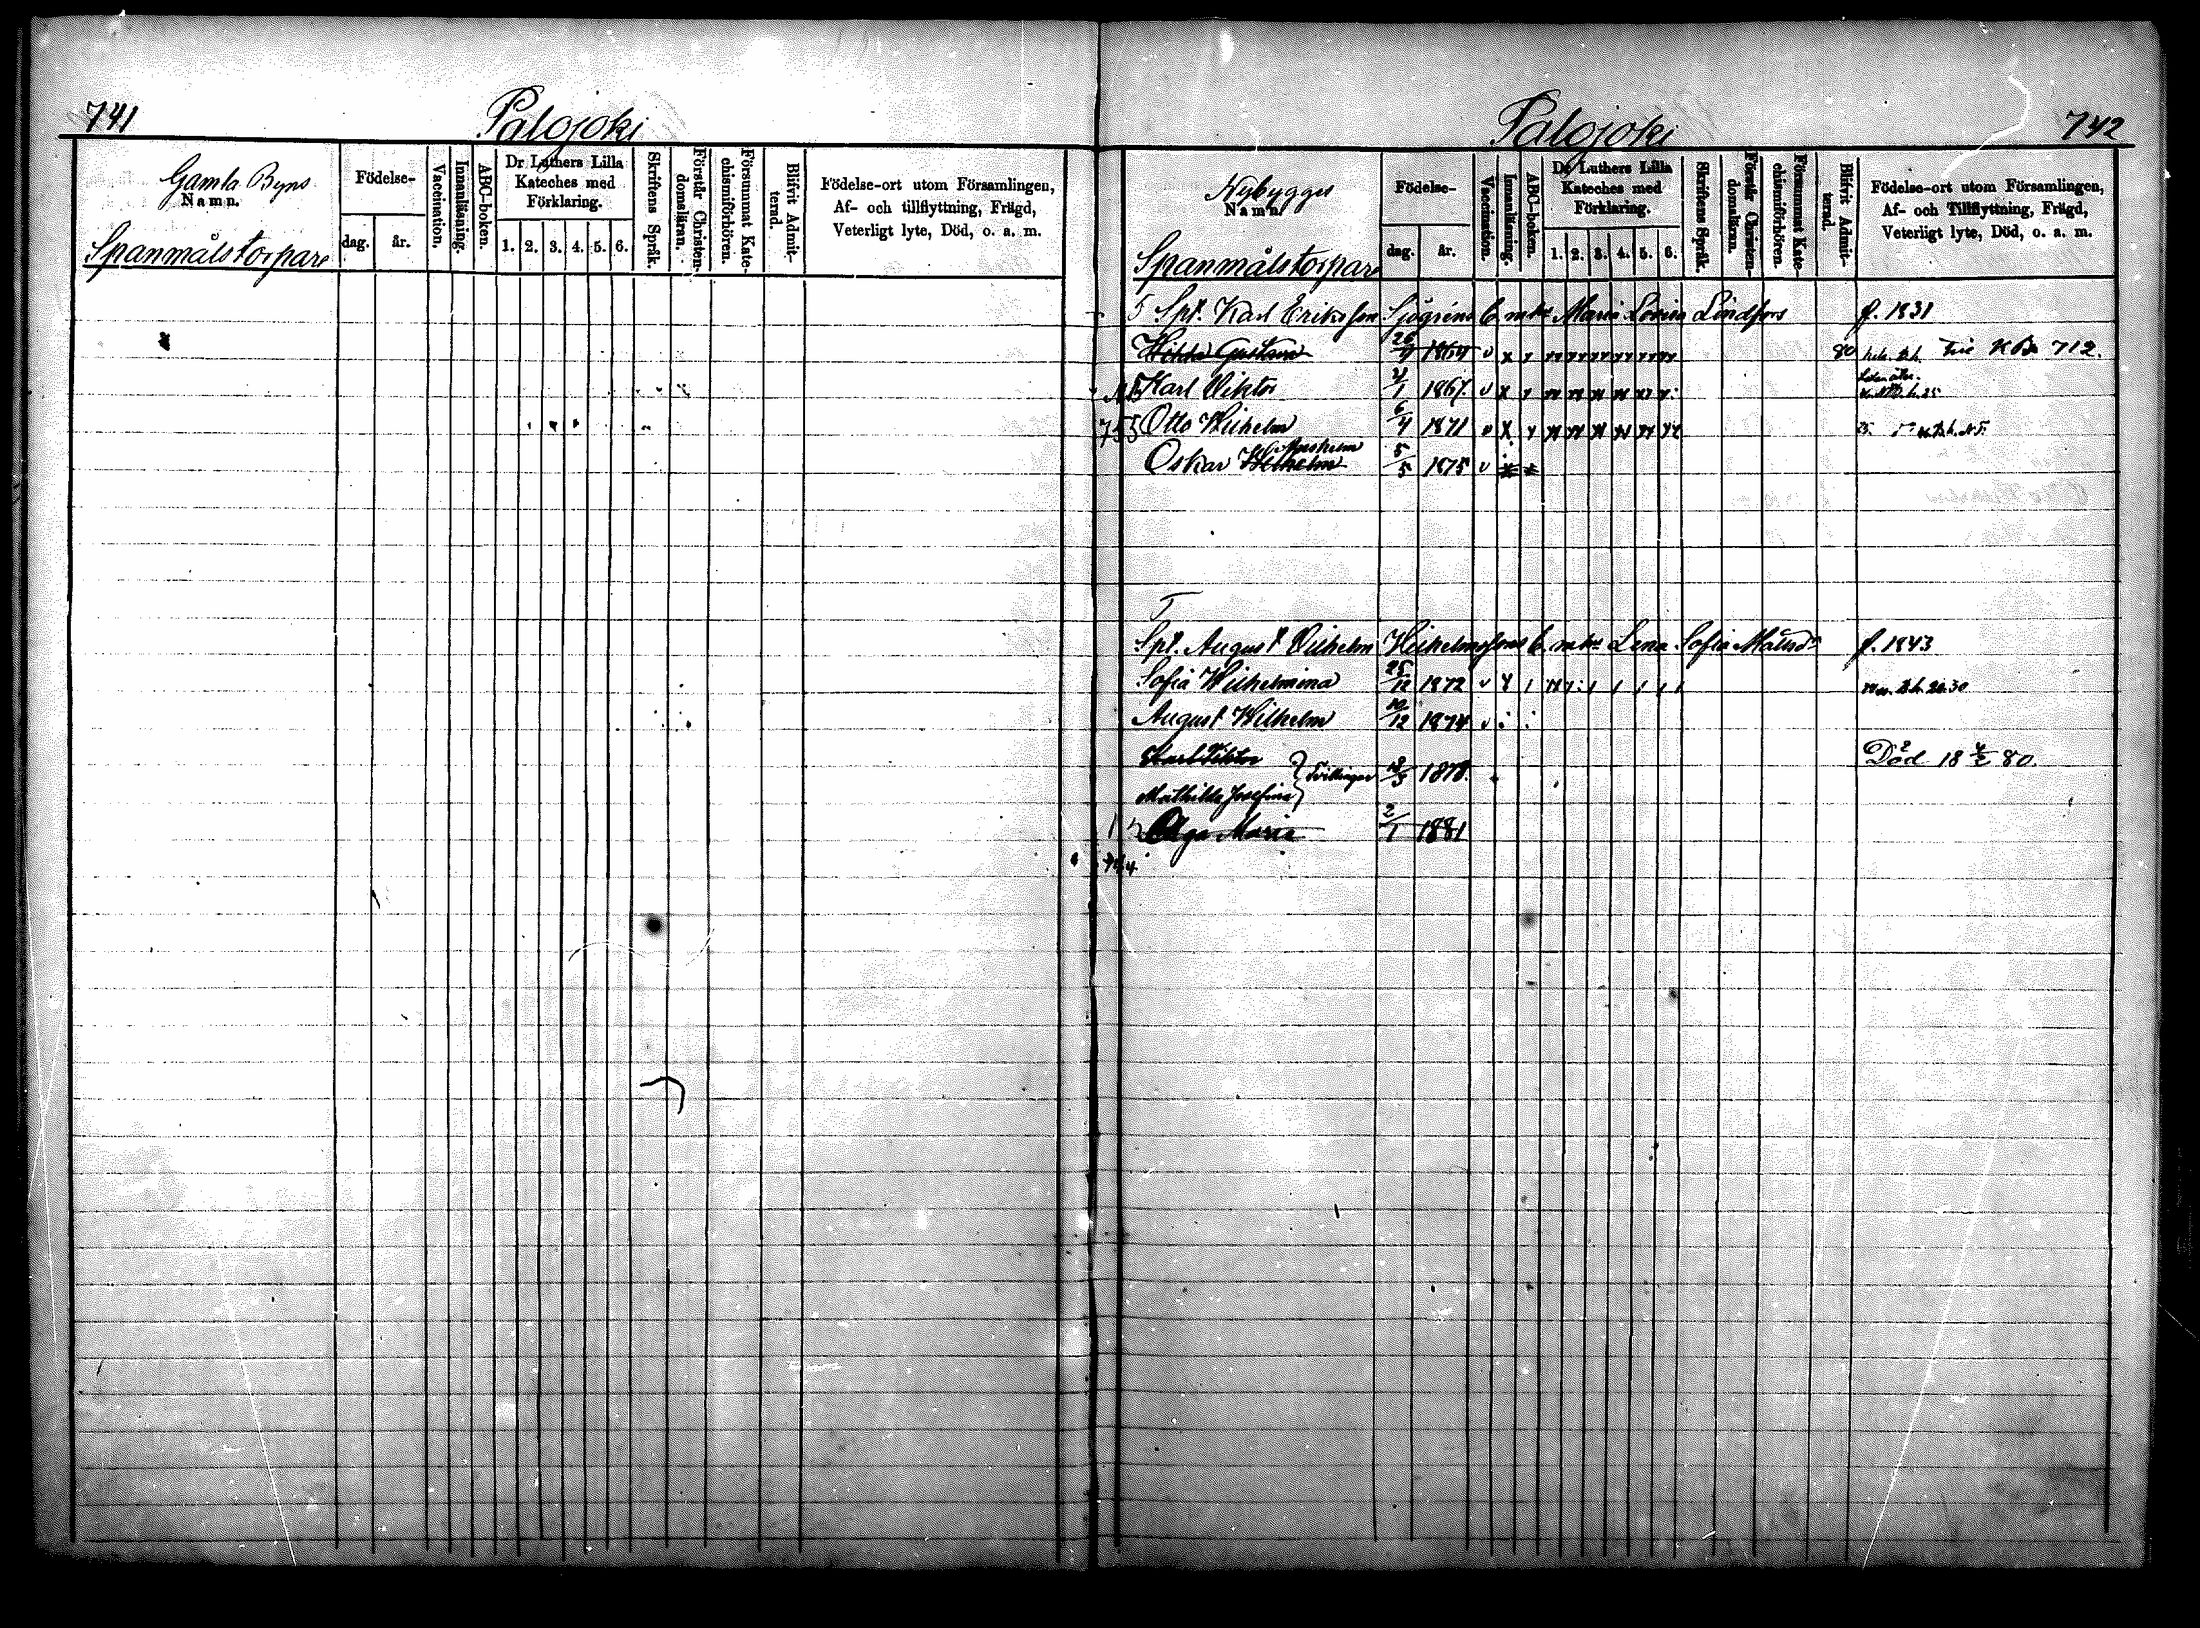 741
Palojoki
Gamla Byns
Namn.
Spanmålstorpare
Födelse-
dag. år.
Vaccination.
Innanläsning.
ABC-boken.
Dr Luthers Lilla
Kateches med
Förklaring.
1. 2. 3. 4. 5. 6.
Skriftens Språk.
Förstår Christen-
domsläran.
Försummat Kate-
chismiförhören.
Blifvit Admit-
terad.
Födelse-ort utom Församlingen,
Af- och tillflyttning, Frägd,
Veterligt lyte, Död, o. a. m.
Palojoki
742
Nybygges
Namn.
Spanmålstorpare
Födelse-
dag. år.
Vaccination.
Innanläsning.
ABC-boken.
Dr Luthers Lilla
Kateches med
Förklaring.
1. 2. 3. 4. 5. 6.
Skriftens Språk.
Förstår Christen-
domsläran.
Försummat Kate-
chismiförhören.
Blifvit Admit-
terad.
Födelse-ort utom Församlingen,
Af- och Tillflyttning, Frägd,
Veterligt lyte, Död, o. a. m.
5 Spt. Karl Eriksson Sjögrens Lovisa Lindfors f. 1831
Hilda Gustava 26/4 1864 80 KB 712.
Karl Viktor 4/1 1867.
755 Otto Wilhelm 6/4 1871
Oskar Wilhelm 5/5 1875
Spt. August Vilhelm Wilhelmssons Lena Sofia Matsdr f. 1843
Sofia Wilhelmina 25/12 1872
August Wilhelm 10/12 1874
Karl Viktor Död 18 80.
Tvillingar 18/3 1878.
Mathilda Josefina
Olga Maria 2/1 1881